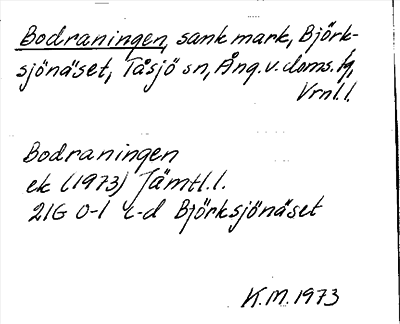 Bodraningen, sank mark, Björk-
sjönäset, Tåsjö sn, Ång. v. doms. fg,
Vrnl. l.
Bodraningen
ek (1973) Jämtl. l.
21G 0-1 c-d Björksjönäset
K.M. 1973